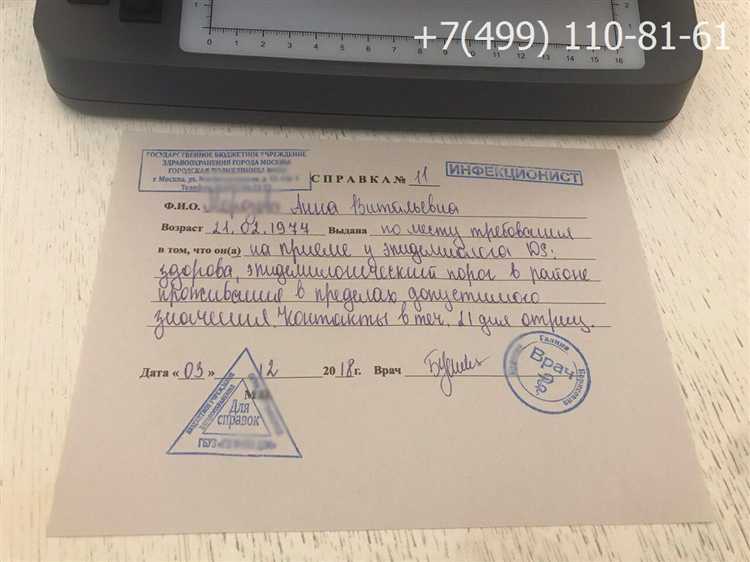 +7(499) 110-81-61
ГОСУДАРСТВЕННОЕ БЮДЖЕТНОЕ УЧРЕЖДЕНИЕ
ЗДРАВООХРАНЕНИЯ ГОРОДА МОСКВЫ
ГОРОДСКАЯ ПОЛИКЛИНИКА
г Москва, ул.
Телеф
СПРАВКА № 11
ИНФЕКЦИОНИСТ
Ф.И.О. Анна Витальевна
Возраст 21.02.1974 Выдана по месту требования
в том, что он(а) на приеме у эпидемиолога DS:
здорова, эпидемилогический порог в районе
проживания в пределах допустимого
значения. Контакты в теч. 21 дня отриц.
Дата « 03 » 12 2018г. Врач
Врач
Галина
Борисовна
Для
справок
ГБУЗ